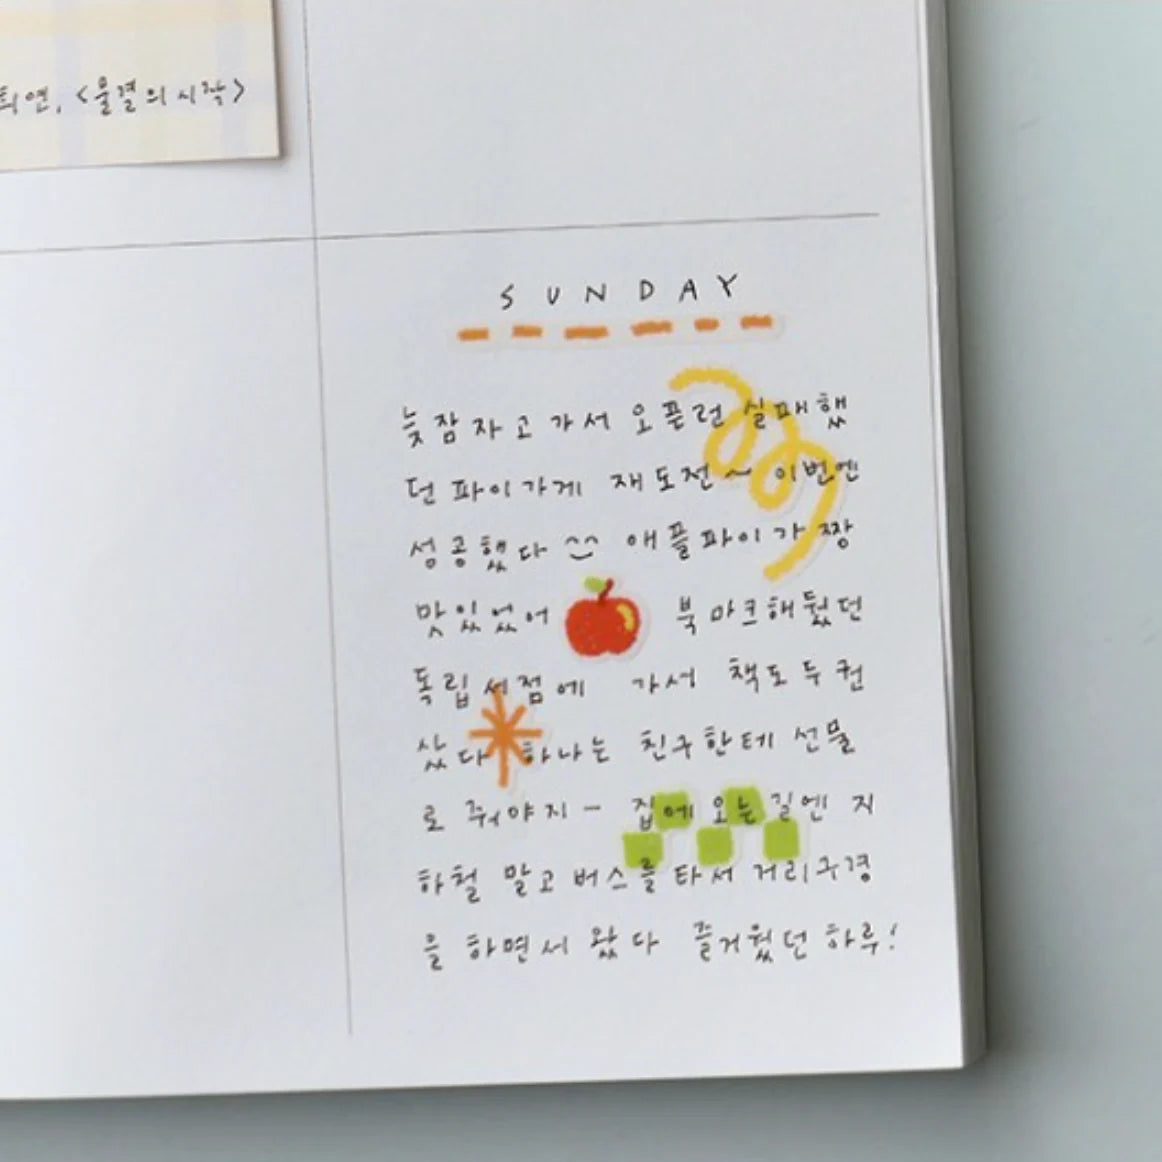 희연, <물결의 시작>
SUNDAY
늦잠자고 가서 오픈런 실패했
던 파이가게 재도전~ 이번엔
성공했다 ^^ 애플파이가 짱
맛있었어 북마크해뒀던
독립서점에 가서 책도 두 권
샀다 하나는 친구한테 선물
로 줘야지- 집에 오는 길엔 지
하철 말고 버스를 타서 거리구경
을 하면서 왔다 즐거웠던 하루!